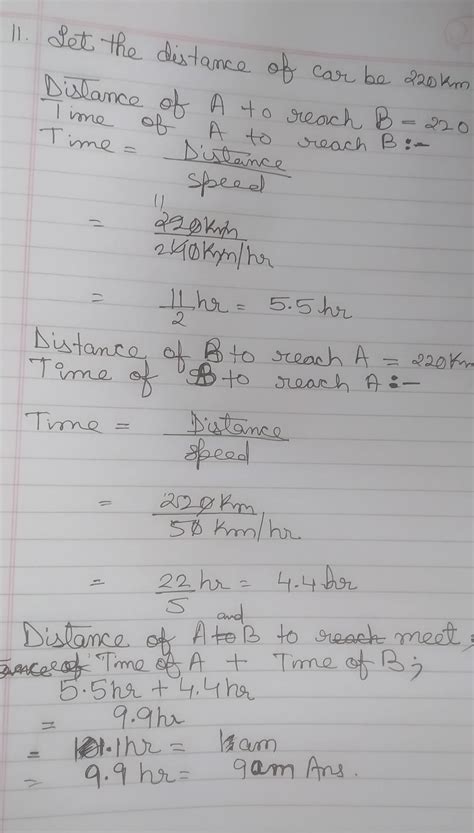 11. Let the distance of car be 220km
Distance of A to reach B = 220
Time of A to reach B :-
Time = Distance
speed
11
= 220Km
240Km/hr
= 11/2 hr = 5.5 hr
Distance of B to reach A = 220Km
Time of B to reach A :-
Time = Distance
speed
= 220Km
50 Km/hr
= 22/5 hr = 4.4 hr
and
Distance of A to B to reach meet
Time of A + Time of B;
5.5hr + 4.4hr
= 9.9hr
= .1hr = am
= 9.9 hr = 9am Ans.